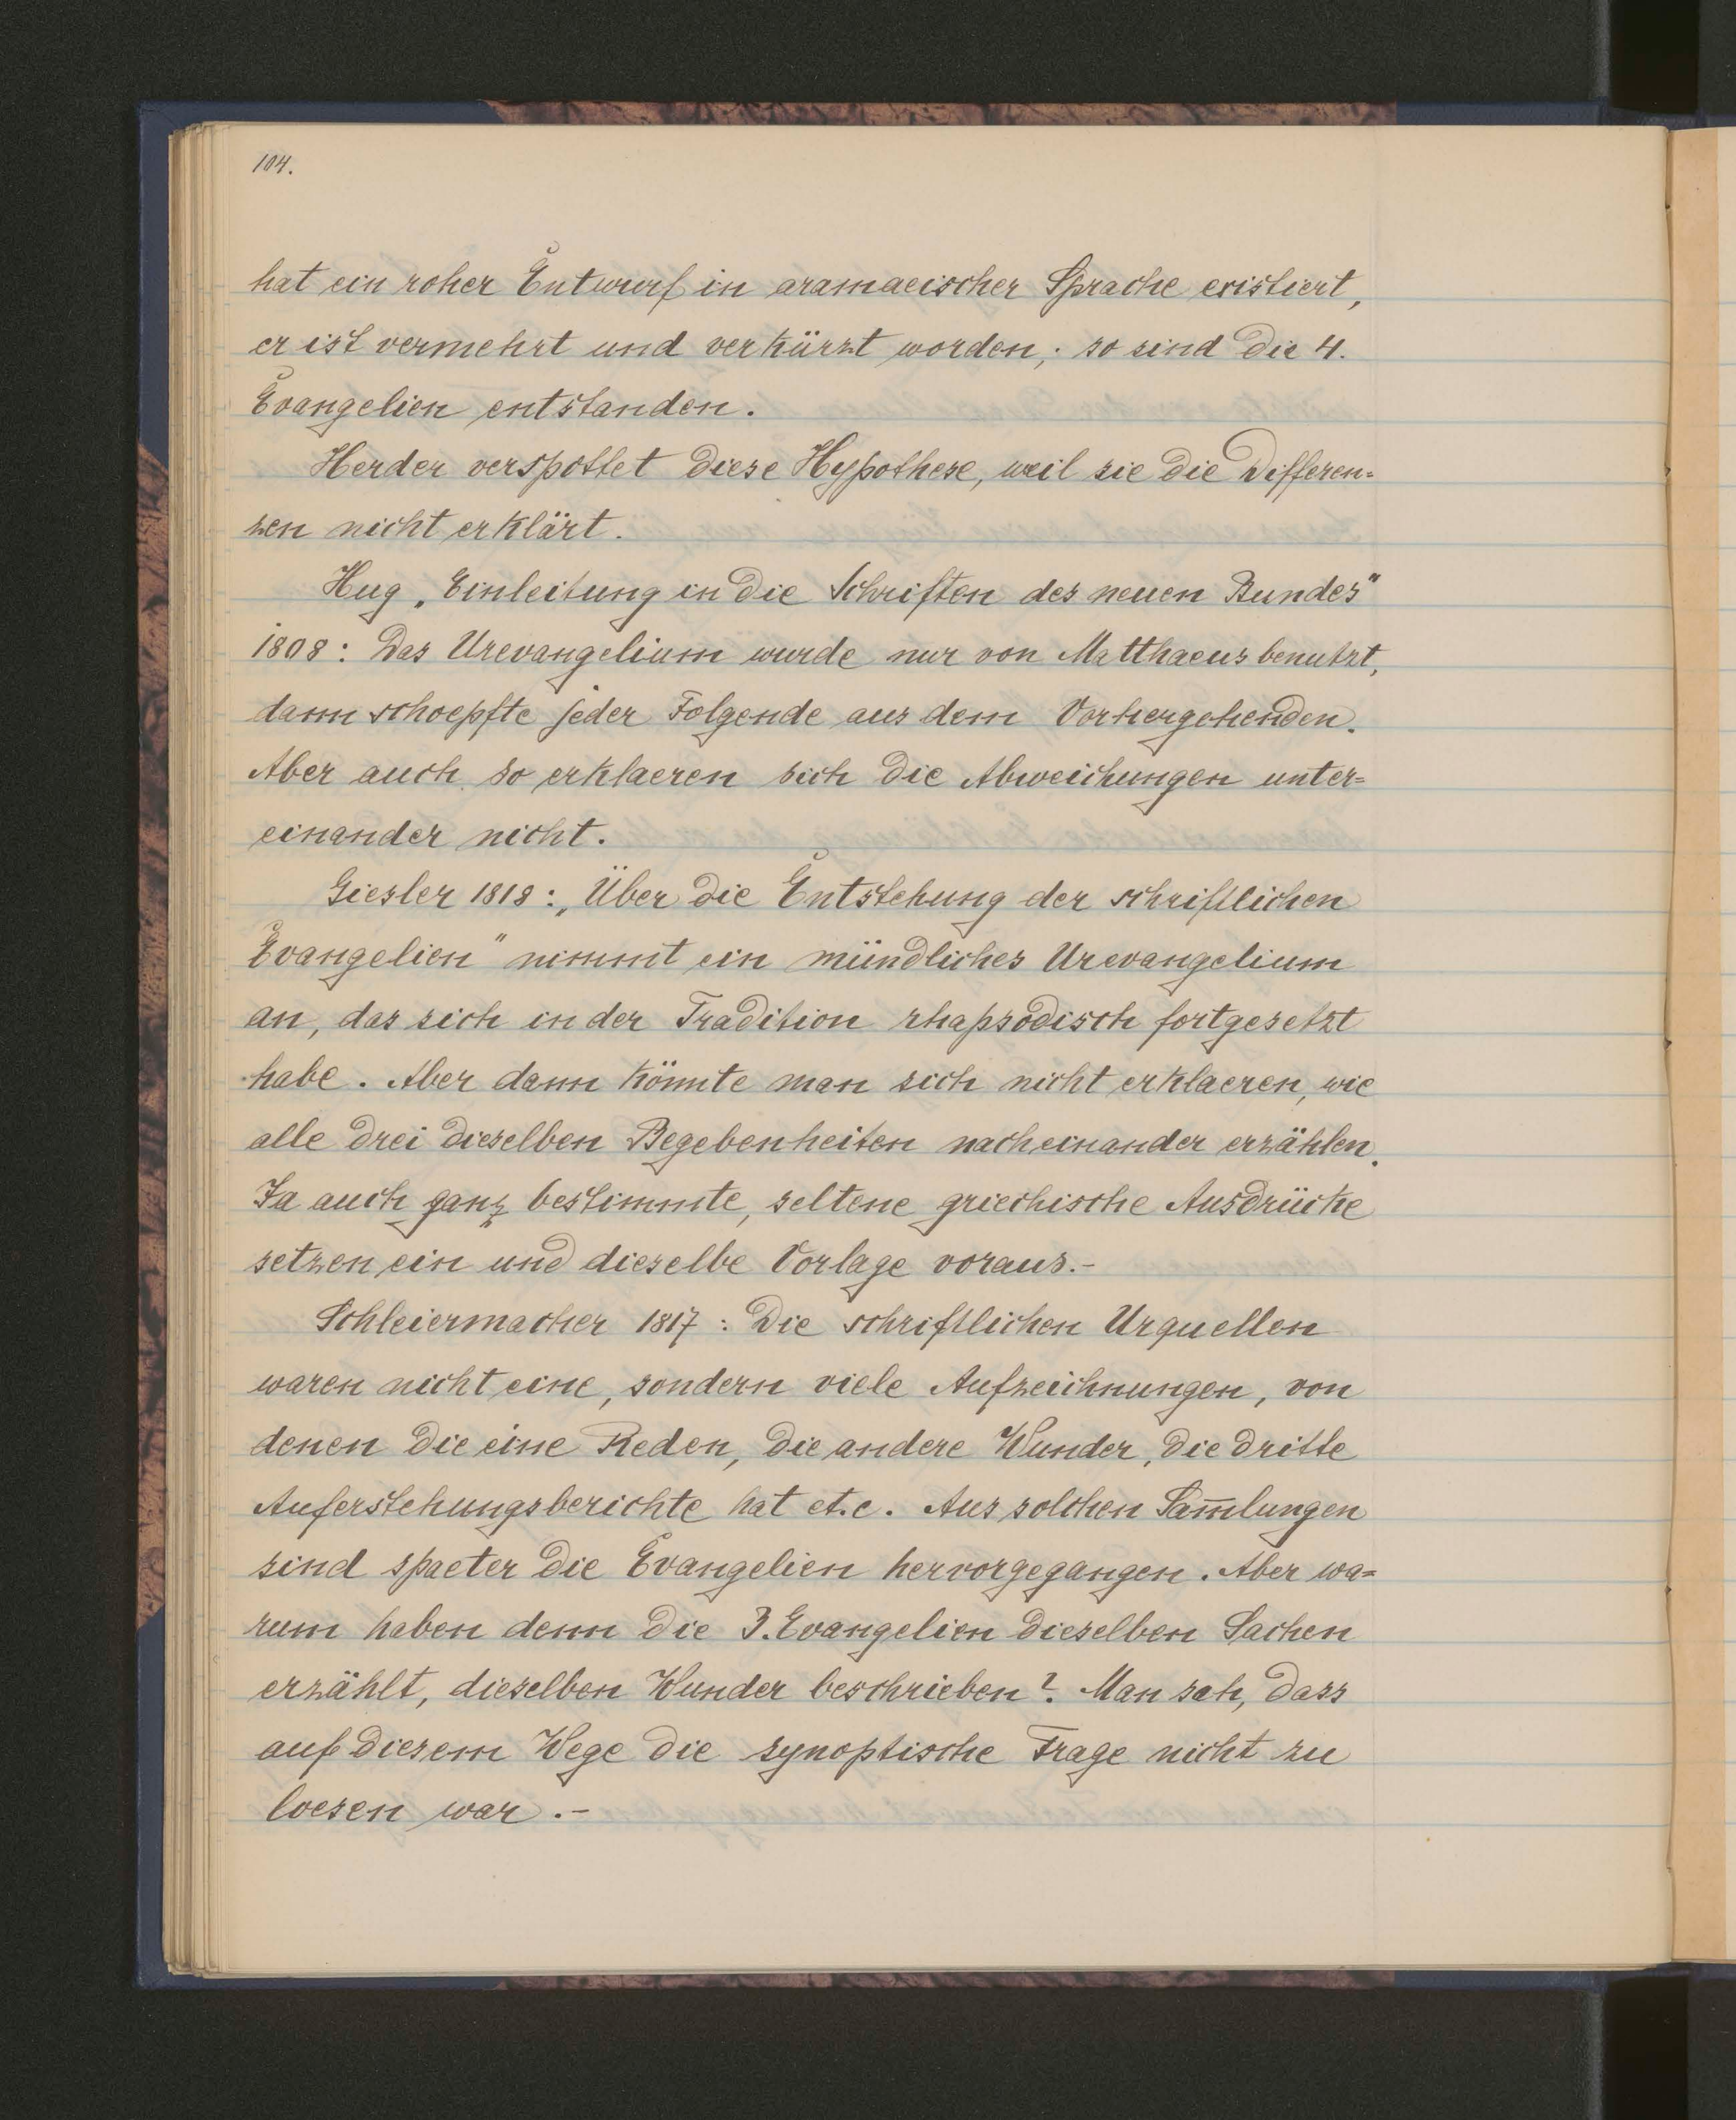 104.
hat ein roher Entwurf in aramaeischer Sprache existiert,
er ist vermehrt und verkürzt worden; so sind die 4.
Evangelien entstanden.
Herder verspottet diese Hypothese, weil sie die Differen-
zen nicht erklärt.
Hug „Einleitung in die Schriften des neuen Bundes"
1808: Das Urevangelium wurde nur von Matthaeus benutzt,
dann schoepfte jeder Folgende aus dem Vorhergehenden.
Aber auch so erklaeren sich die Abweichungen unter=
einander nicht.
Giesler 1818: „Über die Entstehung der schriftlichen
Evangelien" nimmt ein mündliches Urevangelium
an, das sich in der Tradition rhapsodisch fortgesetzt
habe. Aber dann könnte man sich nicht erklaeren, wie
alle drei dieselben Begebenheiten nacheinander erzählen.
Ja auch ganz bestimmte, seltene griechische Ausdrücke
setzen ein und dieselbe Vorlage voraus.-
Schleiermacher 1817: Die schriftlichen Urquellen
waren nicht eine, sondern viele Aufzeichnungen, von
denen die eine Reden, die andere Wunder, die dritte
Auferstehungsberichte hat et.c. Aus solchen Sam̅lungen
sind spaeter die Evangelien hervorgegangen. Aber wa=
rum haben denn die 3. Evangelien dieselben Sachen
erzählt, dieselben Wunder beschrieben? Man sah, dass
auf diesem Wege die synoptische Frage nicht zu
loesen war.-